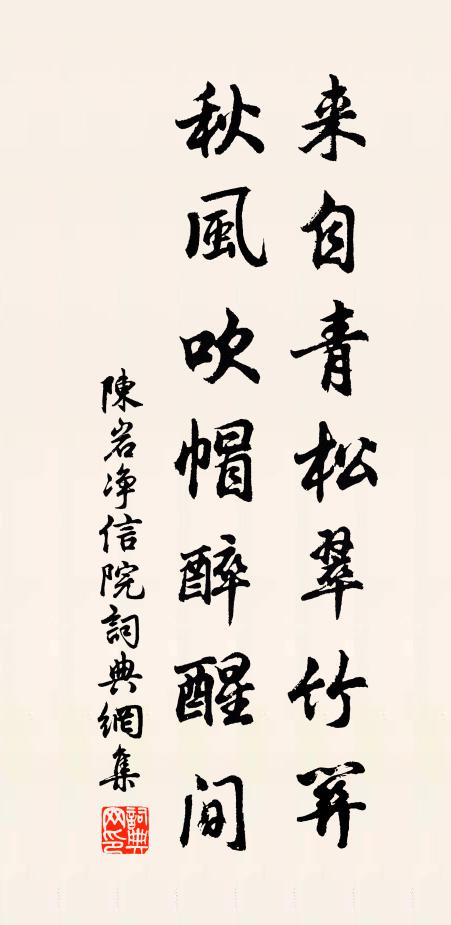 来自青松翠竹关
秋風吹帽醉醒间
陳岩净信院詞典網集
詞典
网印